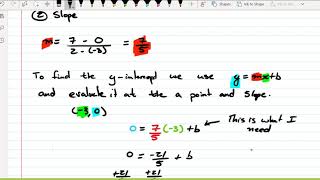 ② Slope
m = 7 - 0 / 2 - (-3) = 7/5
To find the y-intercept we use y = mx + b
and evaluate it at the a point and slope.
(-3, 0)
0 = 7/5 (-3) + b
This is what I need
0 = -21/5 + b
+21 +21